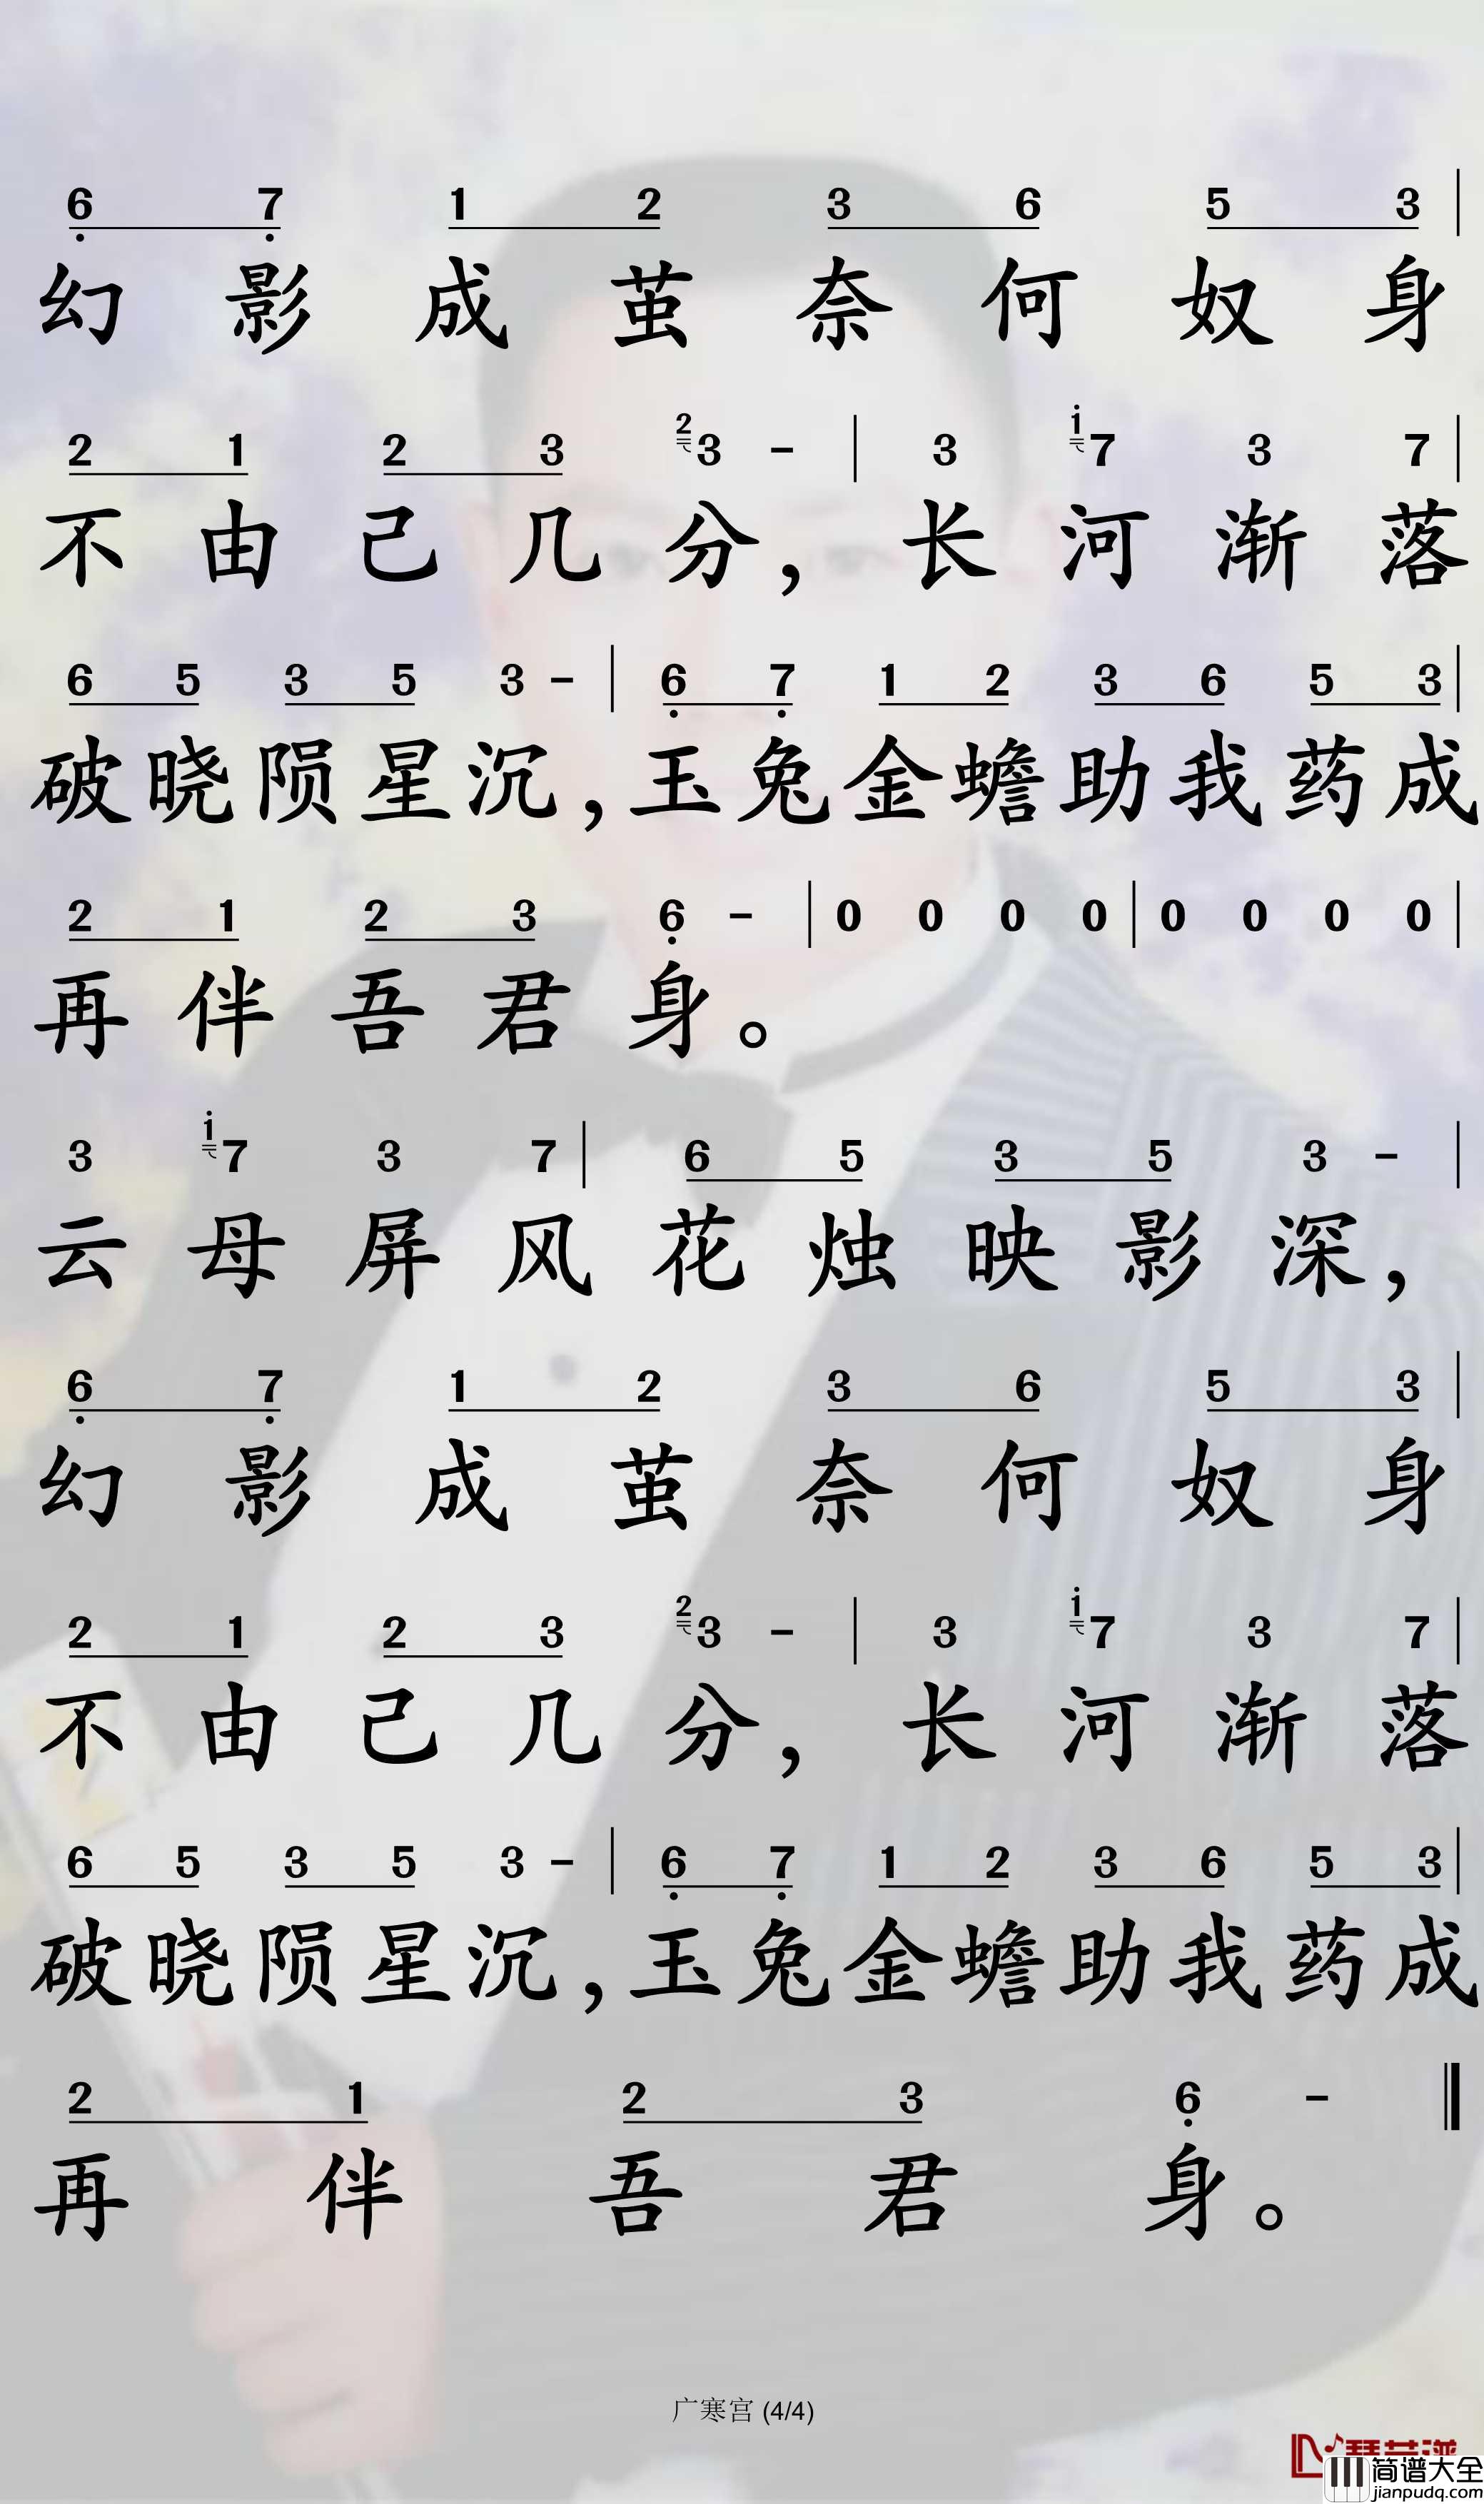 6 7 1 2 3 6 5 3
幻影成茧奈何奴身
2 1 2 3 2 3 - | 3 i 7 3 7
不由己几分，长河渐落
6 5 3 5 3 - | 6 7 1 2 3 6 5 3
破晓陨星沉，玉兔金蟾助我药成
2 1 2 3 6 - | 0 0 0 0 | 0 0 0 0
再伴吾君身。
3 i 7 3 7 | 6 5 3 5 3 -
云母屏风花烛映影深，
6 7 1 2 3 6 5 3
幻影成茧奈何奴身
2 1 2 3 2 3 - | 3 i 7 3 7
不由己几分，长河渐落
6 5 3 5 3 - | 6 7 1 2 3 6 5 3
破晓陨星沉，玉兔金蟾助我药成
2 1 2 3 6 -
再伴吾君身。
广寒宫 (4/4)
简谱大全
jianpudq.com